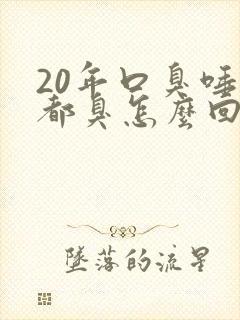 20年口臭唾
都臭怎麼回
墜落的流星